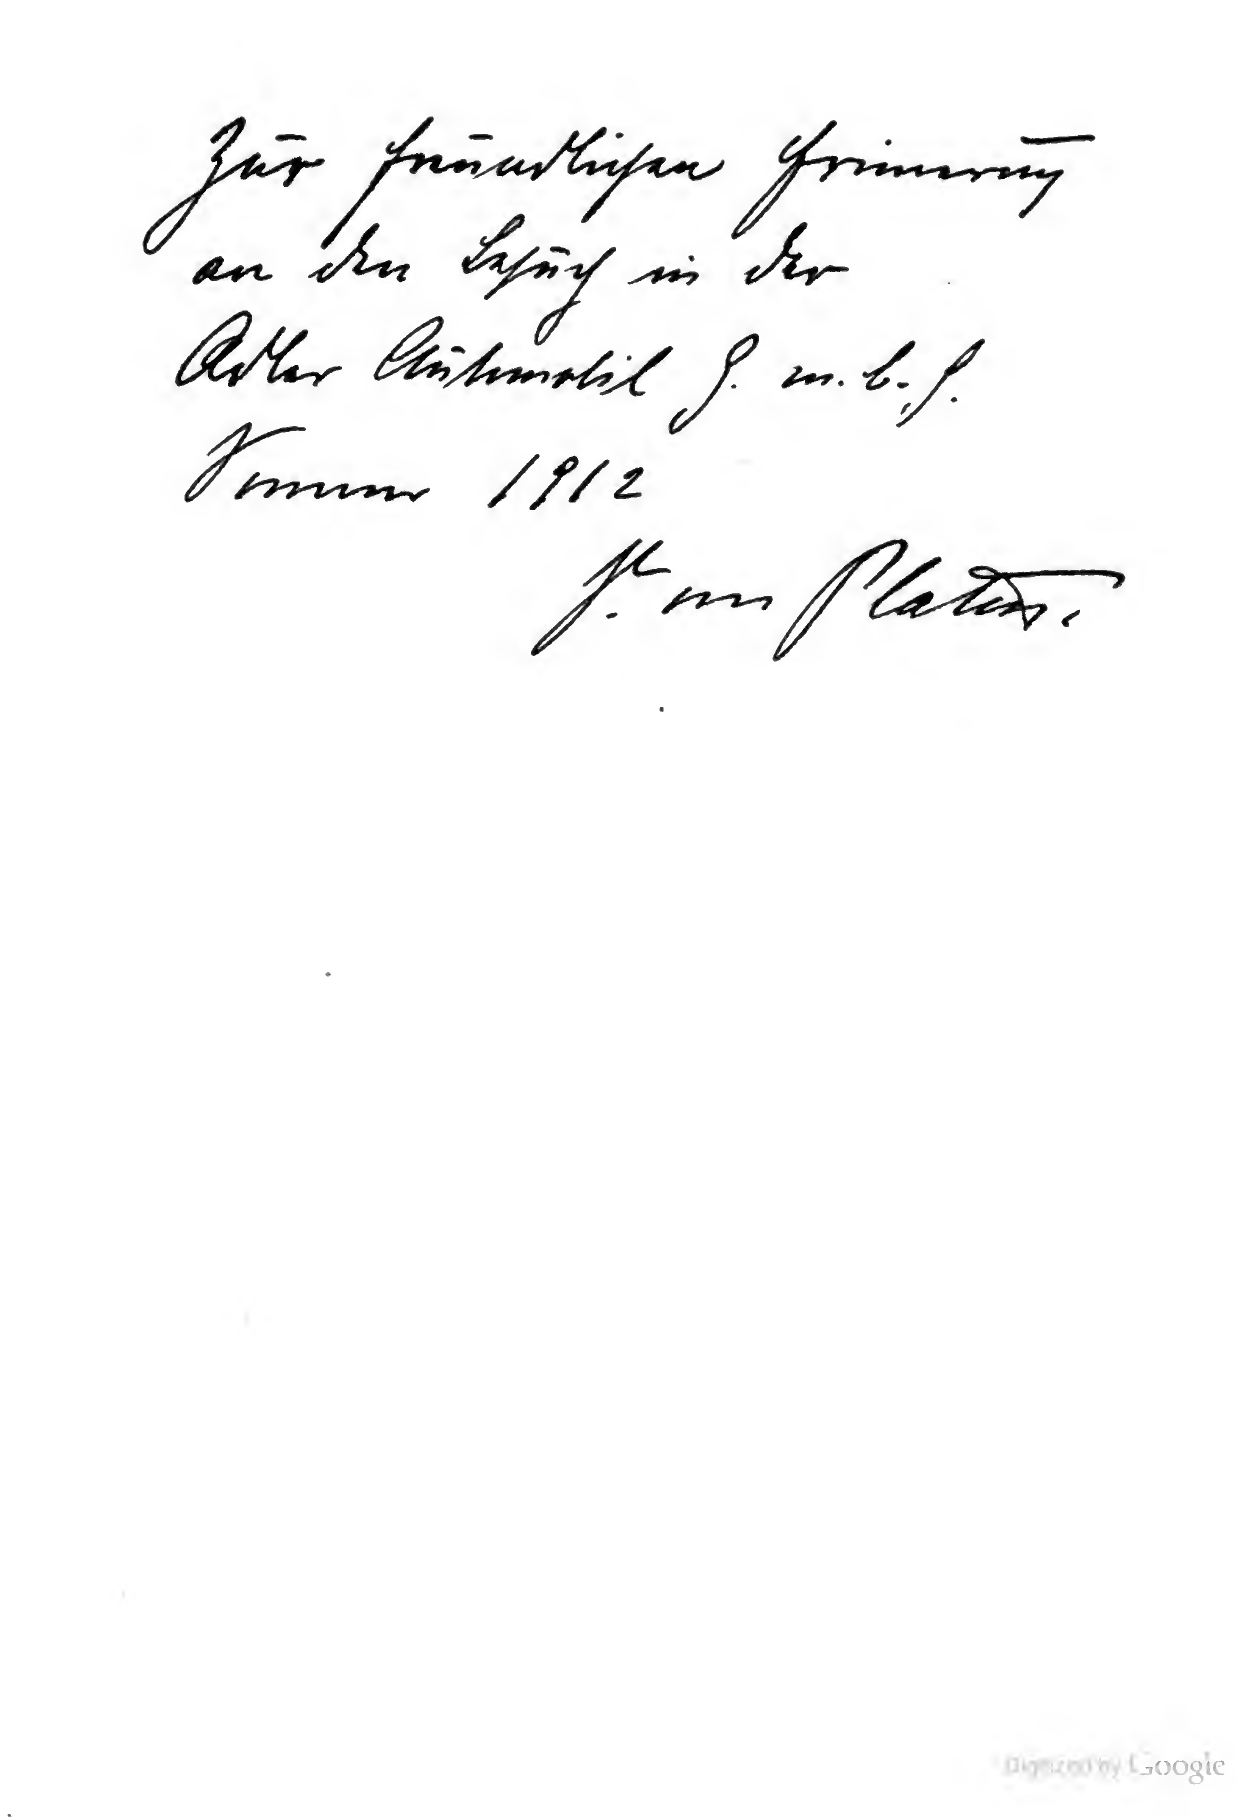 Zur freundlichen Erinnerung
an den Besuch in der
Adler Automobil G. m. b. H.
Sommer 1912
von Platen.
Digitized by Google